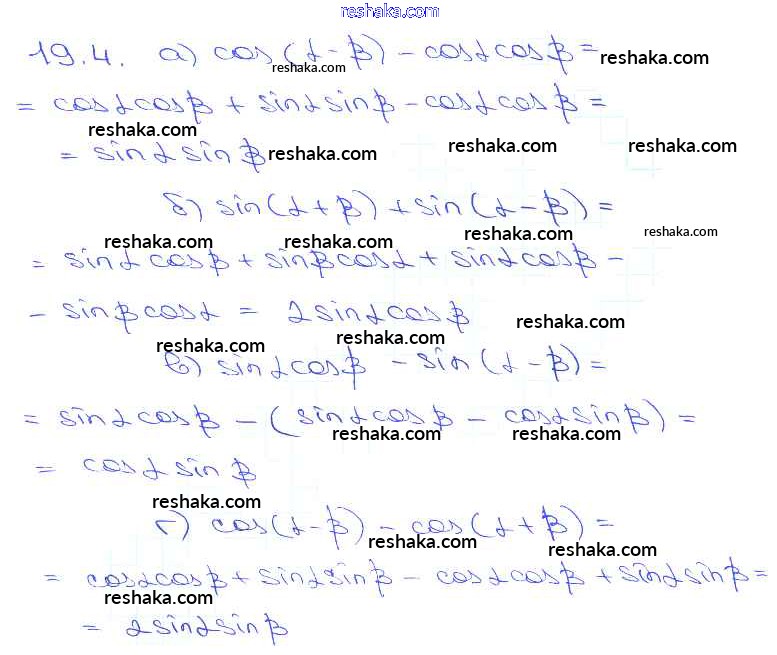 reshaka.com
19.4. а) cos(α-β) - cosα cosβ = reshaka.com
reshaka.com
= cosα cosβ + sinα sinβ - cosα cosβ =
reshaka.com
= sinα sinβ reshaka.com reshaka.com reshaka.com
б) sin(α+β) + sin(α-β) =
reshaka.com reshaka.com reshaka.com reshaka.com
= sinα cosβ + sinβ cosα + sinα cosβ -
- sinβ cosα = 2sinα cosβ reshaka.com
reshaka.com reshaka.com
в) sinα cosβ - sin(α-β) =
= sinα cosβ - (sinα cosβ - cosα sinβ) =
reshaka.com reshaka.com
= cosα sinβ
reshaka.com
г) cos(α-β) - cos(α+β) =
reshaka.com reshaka.com
= cosα cosβ + sinα sinβ - cosα cosβ + sinα sinβ =
reshaka.com
= 2sinα sinβ